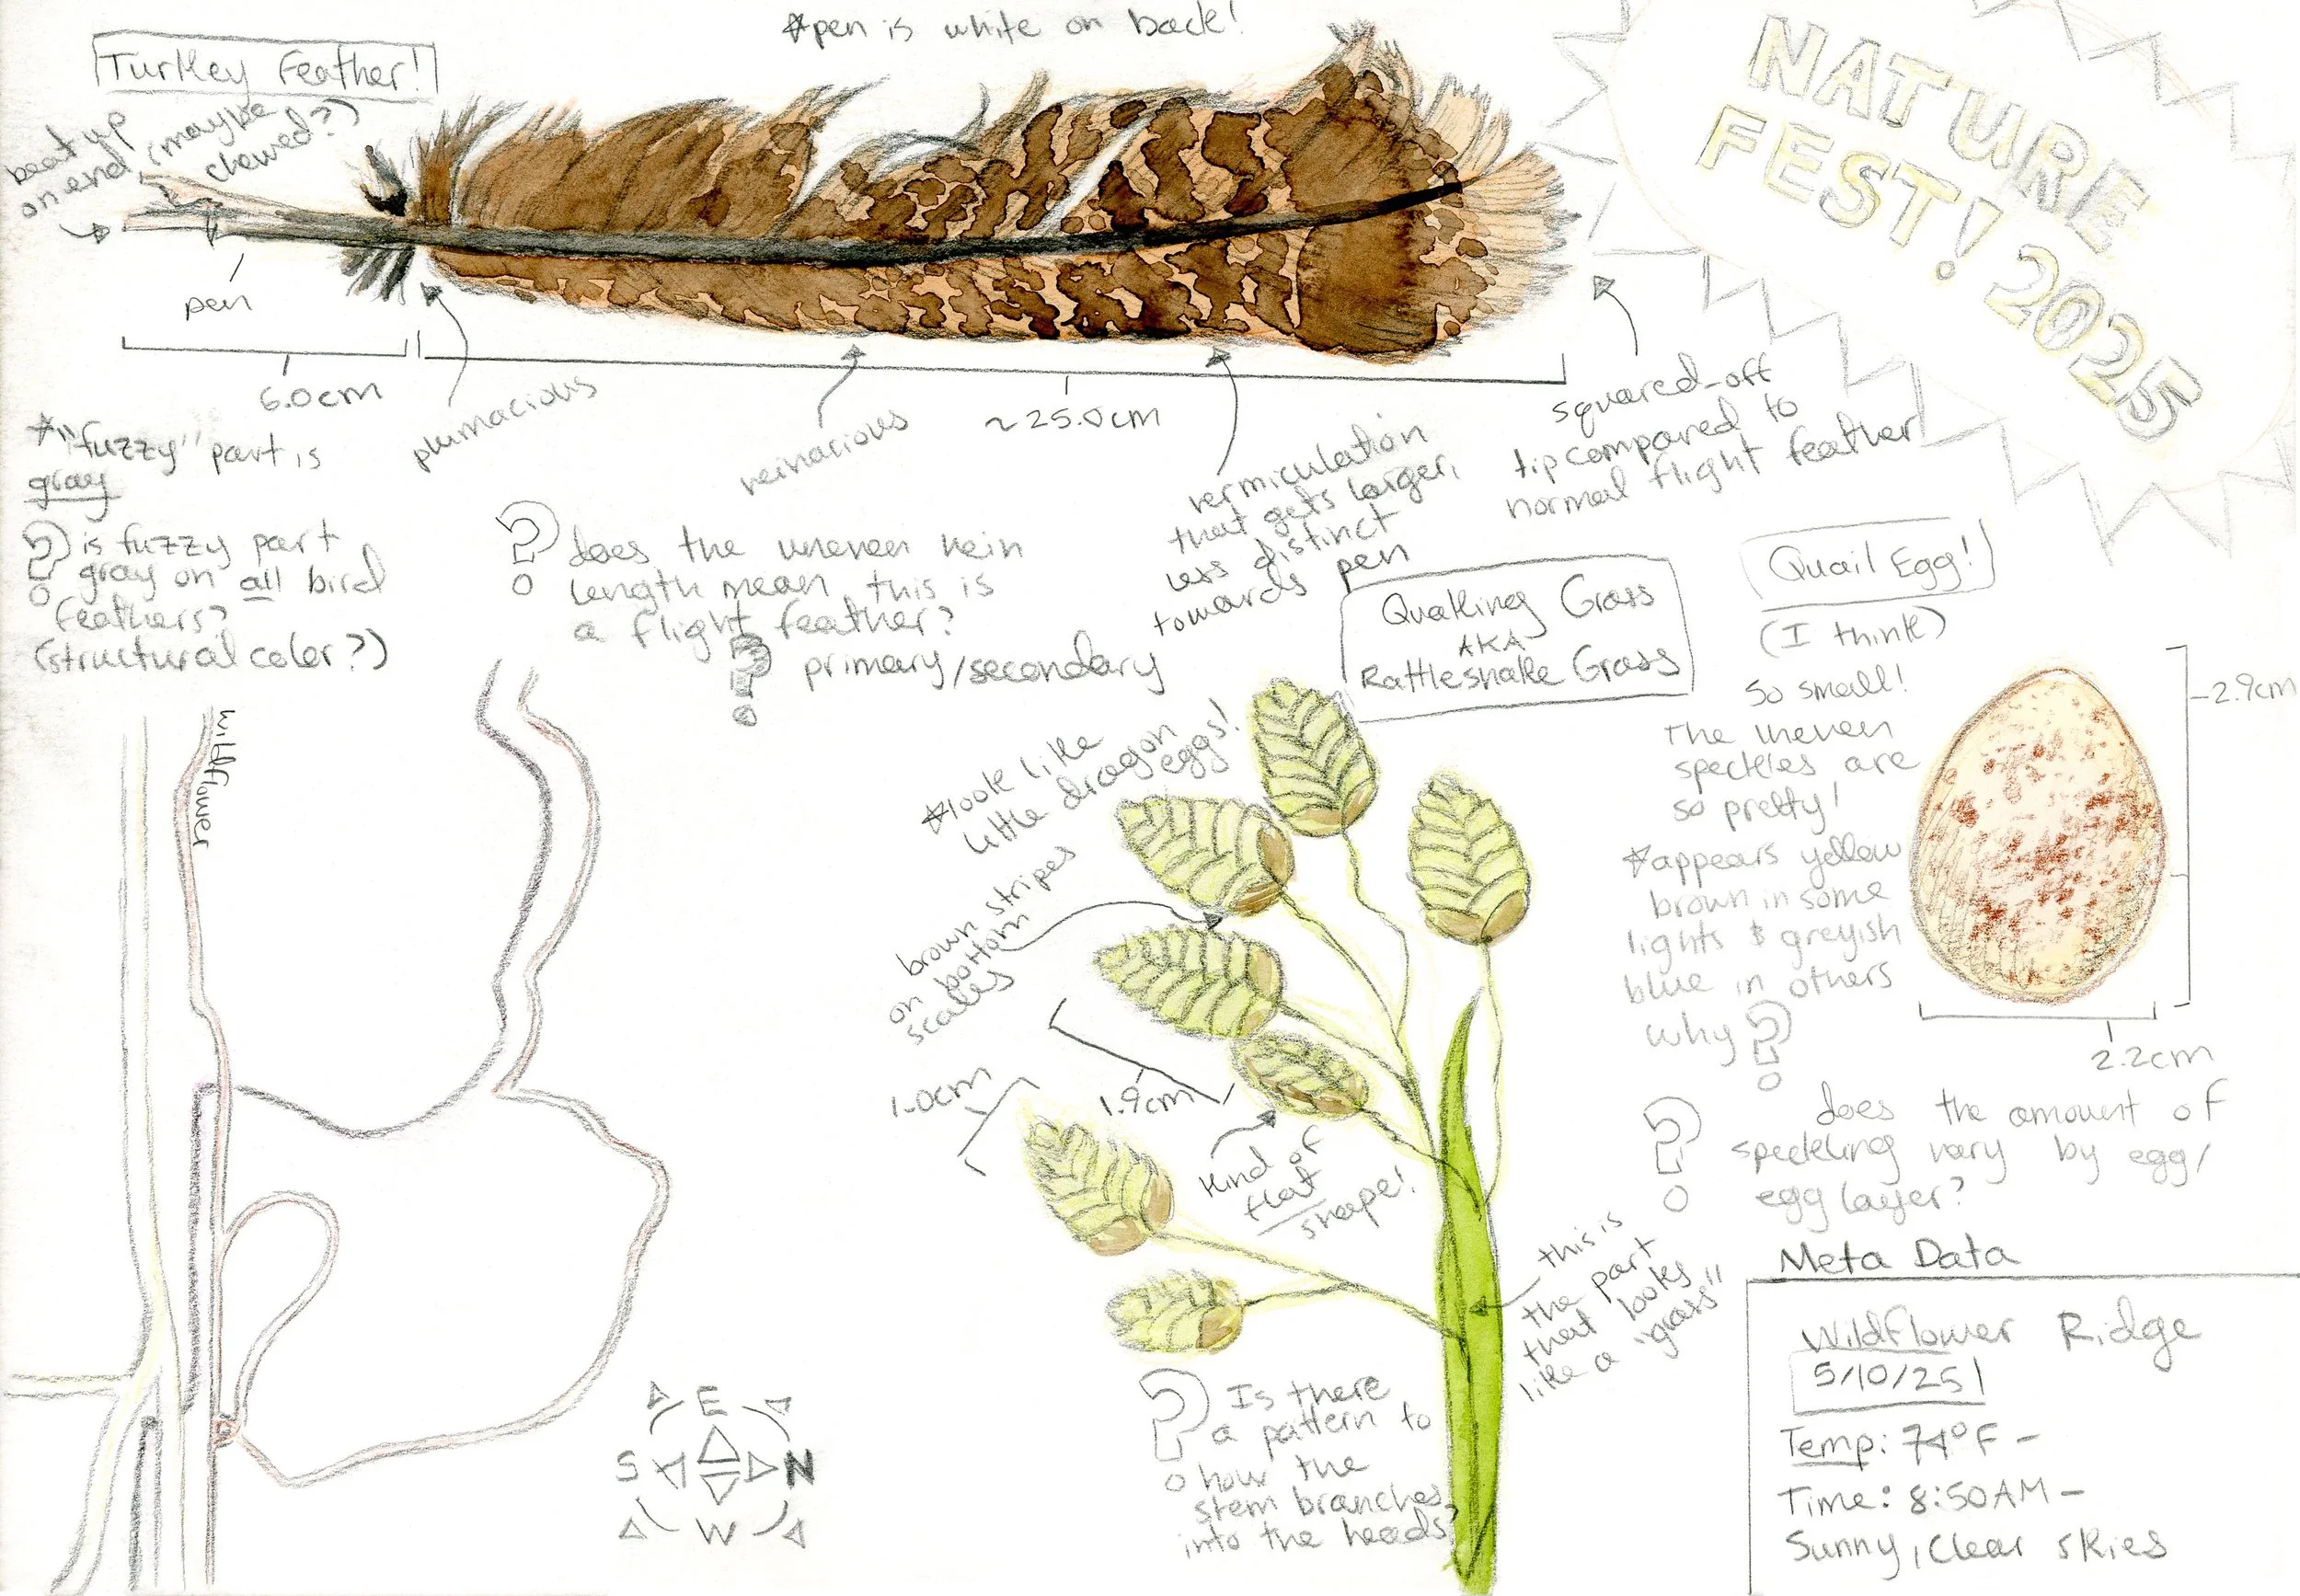 *pen is white on back!
Turkey Feather!
beat up
on end, (maybe
chewed?)
pen
6.0cm
plumacious
veinacious
~25.0cm
vermiculation
that gets larger,
less distinct
towards pen
squared-off
tip compared to
normal flight feather
NATURE
FEST! 2025
*"fuzzy" part is
gray
? is fuzzy part
gray on all bird
feathers?
(structural color?)
? does the uneven vein
length mean this is
a flight feather?
? primary/secondary
Quaking Grass
AKA
Rattlesnake Grass
*look like
little dragon
eggs!
brown stripes
on bottom
scales
1.0cm
1.9cm
kind of
flat
shape!
this is
the part
that looks
like a "grass"
? Is there
a pattern to
how the
stem branches
into the heads?
Quail Egg!
(I think)
so small!
The uneven
speckles are
so pretty!
*appears yellow
brown in some
lights & greyish
blue in others
why?
2.9cm
2.2cm
? does the amount of
speckling vary by egg/
egg layer?
wildflower
E
S N
W
Meta Data
Wildflower Ridge
5/10/25
Temp: 74°F -
Time: 8:50AM -
Sunny, clear skies